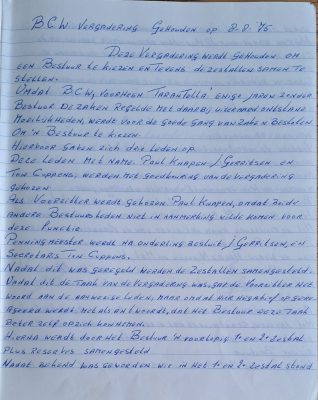 BCW VERGADERING GEHOUDEN OP 8.8.'75
DEZE VERGADERING WERDT GEHOUDEN OM
EEN BESTUUR TE KIEZEN EN TEVENS DE ZESTALLEN SAMEN TE
STELLEN.
OMDAT BCW, VOORHEEN TARANTOLLA, ENIGE JAREN ZONDER
BESTUUR DE ZAKEN REGELDE MET DAARBIJ, UITERAARD ONTSTANE
MOEILIJKHEDEN, WERDT VOOR DE GOEDE GANG VAN ZAKEN BESLOTEN
OM 'N BESTUUR TE KIEZEN
HIERVOOR GAVEN ZICH DRIE LEDEN OP
DEZE LEDEN MET NAME. PAUL KNAPEN, J GERRITSEN EN
TON CUPPENS, WERDEN MET GOEDKEURING VAN DE VERGADERING
GEKOZEN
ALS VOORZITTER WERDT GEKOZEN PAUL KNAPEN, OMDAT BEIDE
ANDERE BESTUURSLEDEN NIET IN AANMERKING WILDE KOMEN VOOR
DEZE FUNCTIE.
PENNINGMEESTER WERDT NA ONDERLING BESLUIT J GERRITSEN, EN
SECRETARIS TON CUPPENS.
NADAT DIT WAS GEREGELD WERDEN DE ZESTALLEN SAMENGESTELD.
OMDAT DIT DE TAAK VAN DE VERGADERING WAS, GAF DE VOORZITTER HET
WOORD AAN DE AANWEZIGE LEDEN, MAAR OMDAT HIER NEGATIEF OP GEREA
GEERD WERDT, MET ALS ANTWOORDT, DAT HET BESTUUR DEZE TAAK
BETER ZELF OP ZICH KON NEMEN.
HIERNA WERDT DOOR HET BESTUUR 'N VOORLOPIG 1e EN 2e ZESTAL
PLUS RESERVES SAMENGESTELD
NADAT BEKEND WAS GEWORDEN WIE IN HET 1e EN 2e ZESTAL STOND